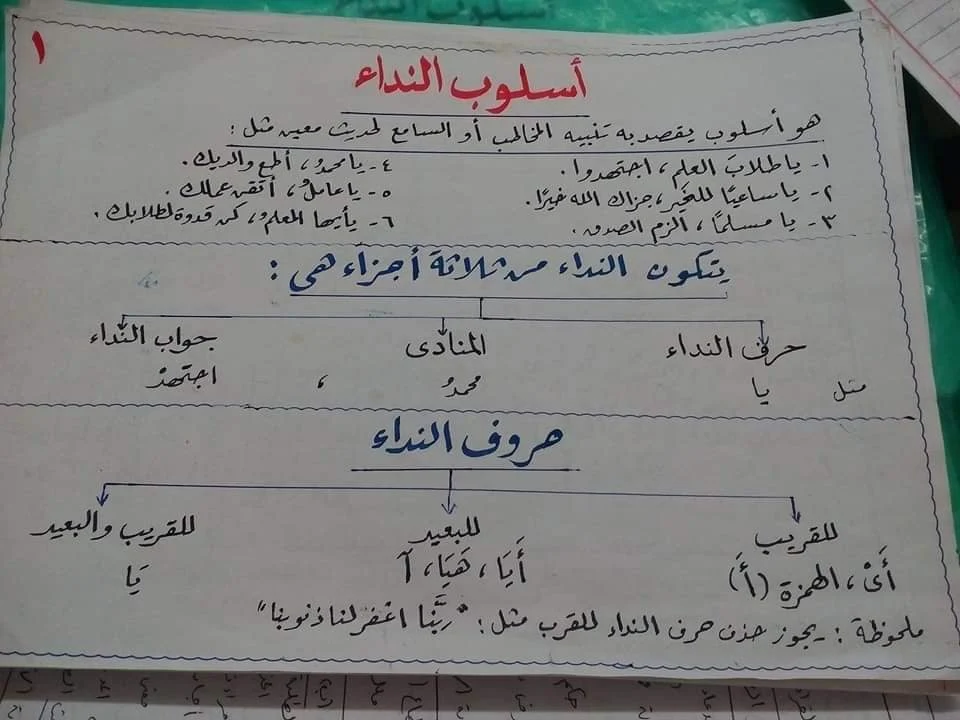 ١
أسلوب النداء
هو أسلوب يقصد به تنبيه المخاطب أو السامع لحديث معين مثل :
١- يا طلابَ العلم ، اجتهدوا .
٢- يا ساعيًا للخير ، جزاك الله خيرًا .
٣- يا مسلمًا ، الزم الصدق .
٤- يا محمدُ ، أطع والديك .
٥- يا عاملُ ، أتقن عملك .
٦- يأيها المعلمُ ، كن قدوة لطلابك .
يتكون النداء من ثلاثة أجزاء هى :
حرف النداء المنادى جواب النداء
مثل يا محمدُ ، اجتهدْ
حروف النداء
للقريب للبعيد للقريب والبعيد
أَىْ ، الهمزة (أَ) أَيَا ، هَيَا ، آ يَا
ملحوظة : يجوز حذف حرف النداء للقرب مثل : "ربَّنا اغفر لنا ذنوبنا"